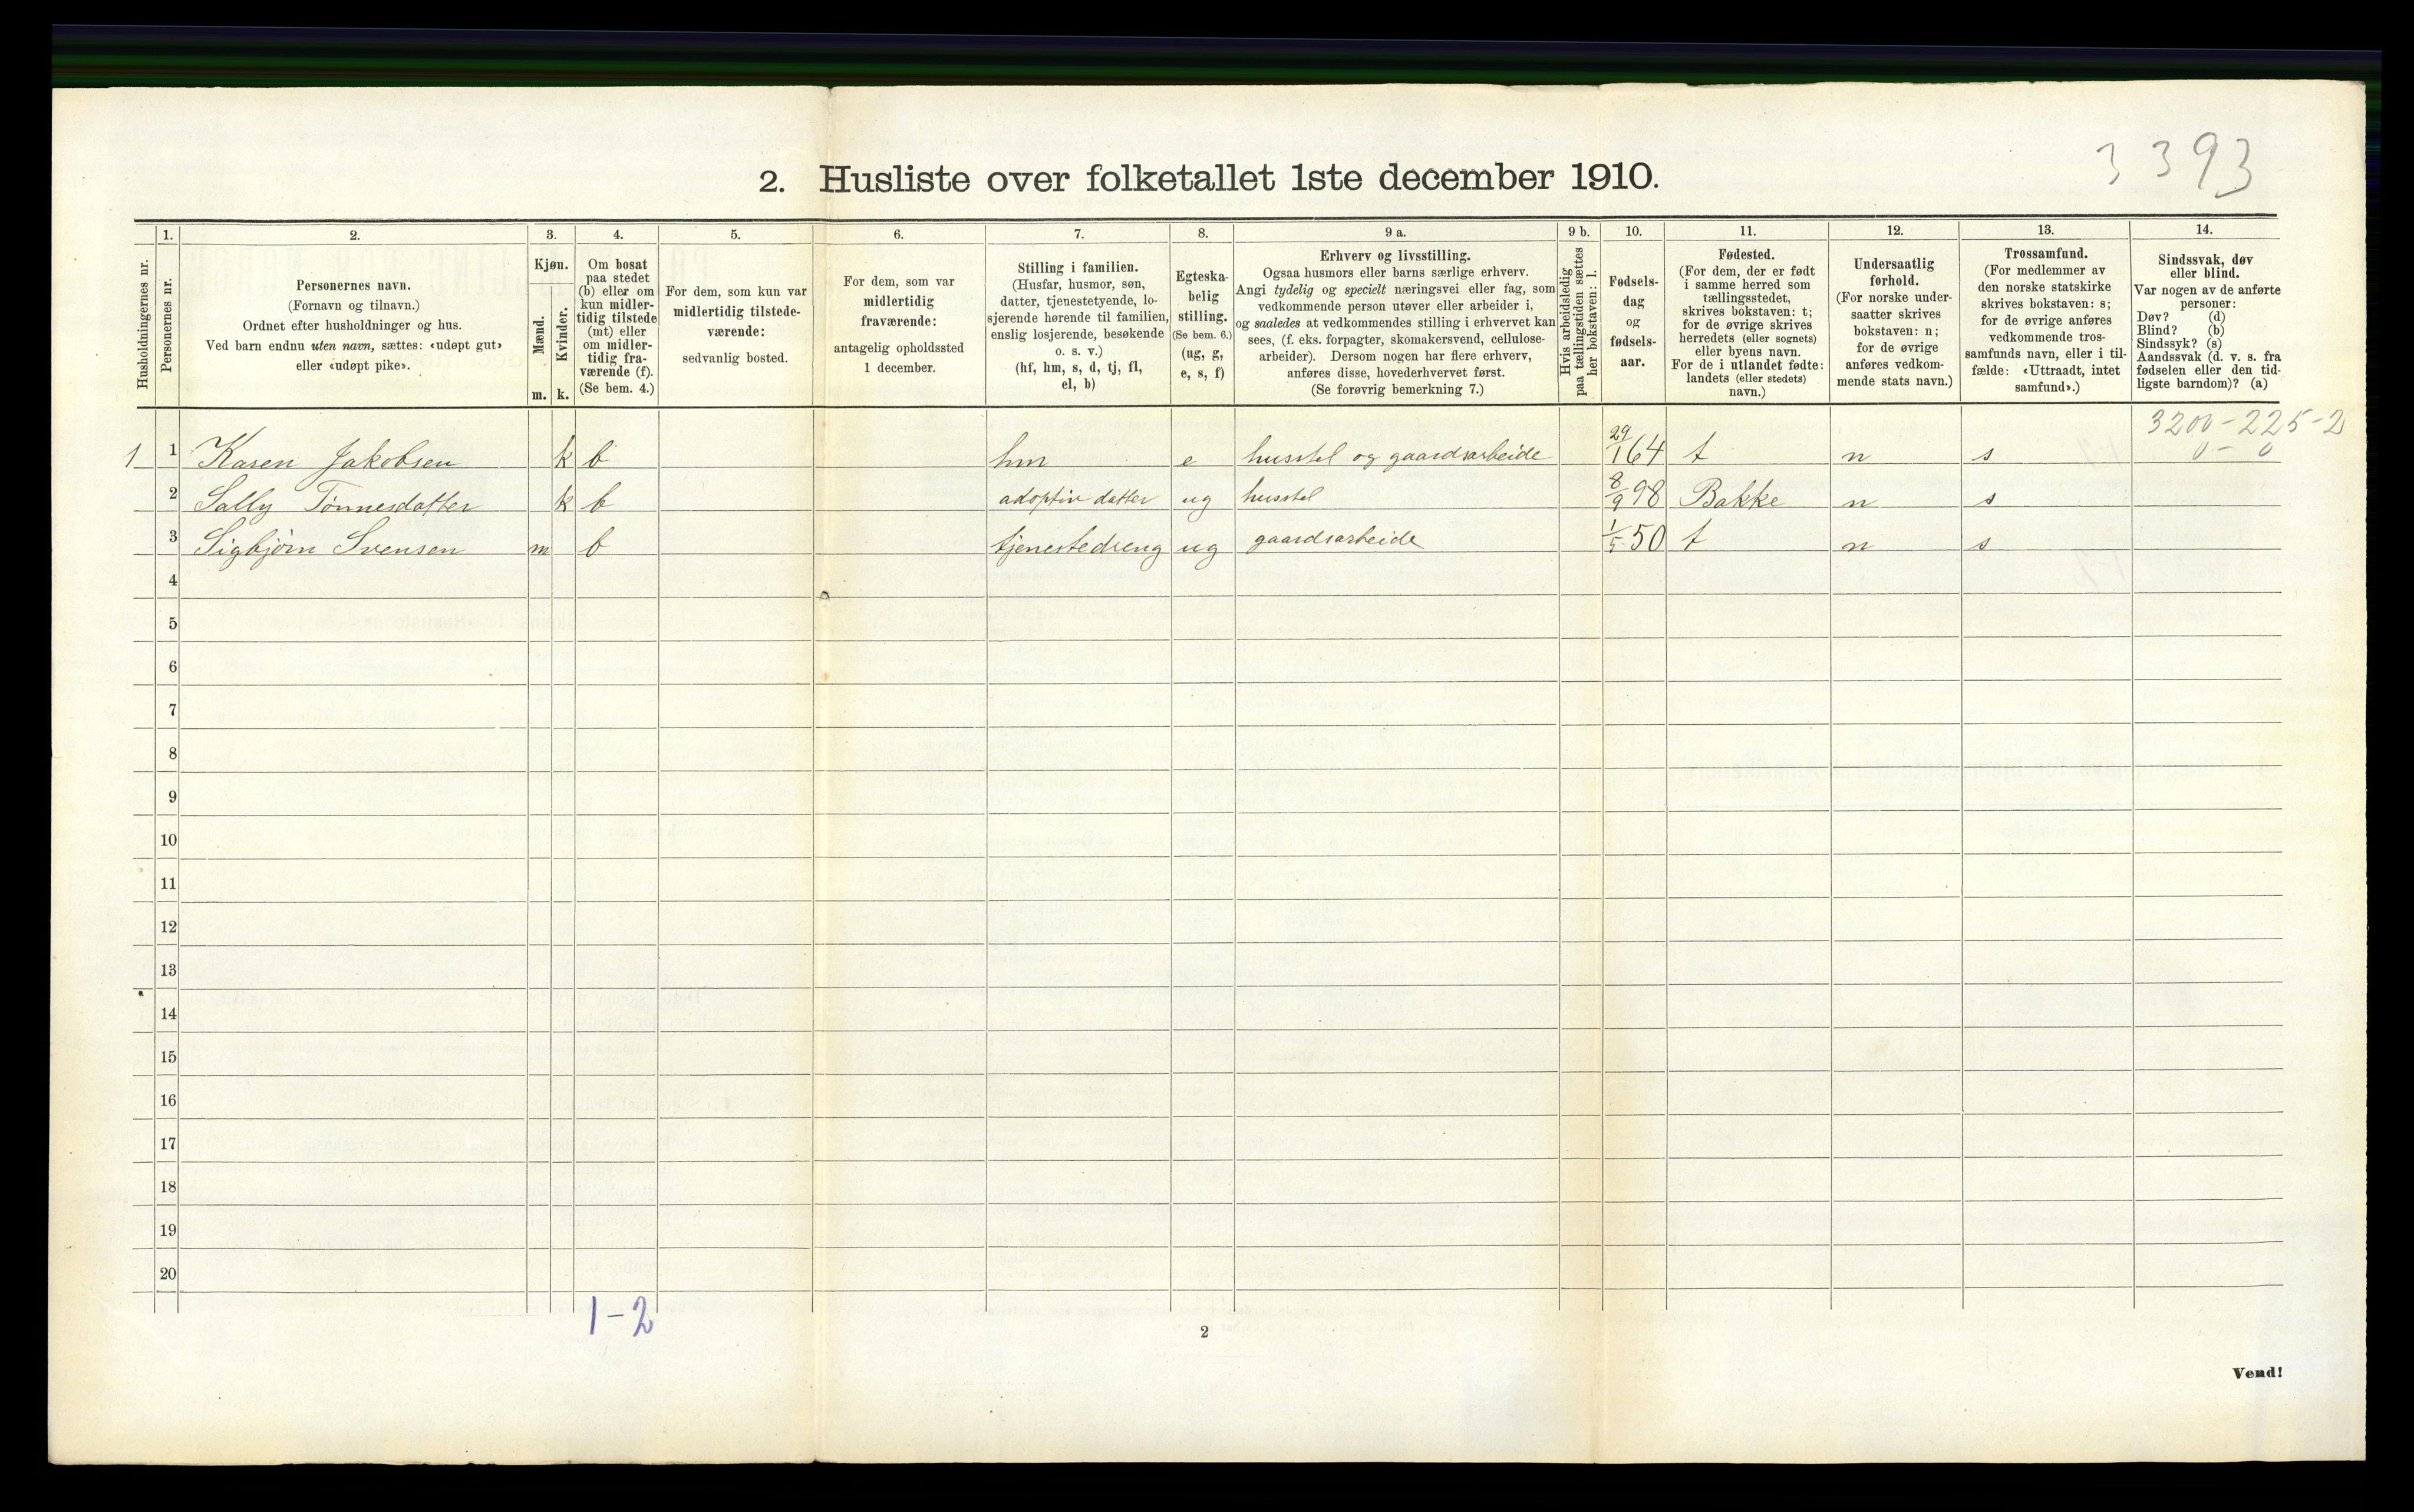 3393
2. Husliste over folketallet 1ste december 1910.
Husholdningernes nr.
1.
Personernes nr.
2.
Personernes navn.
(Fornavn og tilnavn.)
Ordnet efter husholdninger og hus.
Ved barn endnu uten navn, sættes: «udøpt gut»
eller «udøpt pike».
3.
Kjøn.
Mænd.
Kvinder.
m. k.
4.
Om bosat
paa stedet
(b) eller om
kun midler-
tidig tilstede
(mt) eller
om midler-
tidig fra-
værende (f).
(Se bem. 4.)
5.
For dem, som kun var
midlertidig tilstede-
værende:
sedvanlig bosted.
6.
For dem, som var
midlertidig
fraværende:
antagelig opholdssted
1 december.
7.
Stilling i familien.
(Husfar, husmor, søn,
datter, tjenestetyende, lo-
sjerende hørende til familien,
enslig losjerende, besøkende
o. s. v.)
(hf, hm, s, d, tj, fl,
el, b)
8.
Egteska-
belig
stilling.
(Se bem. 6.)
(ug, g,
e, s, f)
9 a.
Erhverv og livsstilling.
Ogsaa husmors eller barns særlige erhverv.
Angi tydelig og specielt næringsvei eller fag, som
vedkommende person utøver eller arbeider i,
og saaledes at vedkommendes stilling i erhvervet kan
sees, (f. eks. forpagter, skomakersvend, cellulose-
arbeider). Dersom nogen har flere erhverv,
anføres disse, hovederhvervet først.
(Se forøvrig bemerkning 7.)
9 b.
Hvis arbeidsledig
paa tællingstiden sættes
her bokstaven: l.
10.
Fødsels-
dag
og
fødsels-
aar.
11.
Fødested.
(For dem, der er født
i samme herred som
tællingsstedet,
skrives bokstaven: t;
for de øvrige skrives
herredets (eller sognets)
eller byens navn.
For de i utlandet fødte:
landets (eller stedets)
navn.)
12.
Undersaatlig
forhold.
(For norske under-
saatter skrives
bokstaven: n;
for de øvrige
anføres vedkom-
mende stats navn.)
13.
Trossamfund.
(For medlemmer av
den norske statskirke
skrives bokstaven: s;
for de øvrige anføres
vedkommende tros-
samfunds navn, eller i til-
fælde: «Uttraadt, intet
samfund».)
14.
Sindssvak, døv
eller blind.
Var nogen av de anførte
personer:
Døv? (d)
Blind? (b)
Sindssyk? (s)
Aandssvak (d. v. s. fra
fødselen eller den tid-
ligste barndom)? (a)
3200-225-2
0-0
1 1 Karen Jakobsen k b hm e husstel og gaardsarbeide 29/1 64 t n s
2 Sally Tönnesdatter k b adoptiv datter ug husstel 8/9 98 Bakke n s
3 Sigbjörn Svensen m b tjenestedreng ug gaardsarbeide 1/5 50 t n s
4
5
6
7
8
9
10
11
12
13
14
15
16
17
18
19
20
1-2
2
Vend!